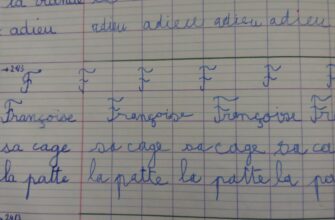 adieu adieu adieu adieu adieu
24/3 F F F F F
Françoise Françoise Françoise
sa cage sa cage sa cage sa
la patte la patte la patte la